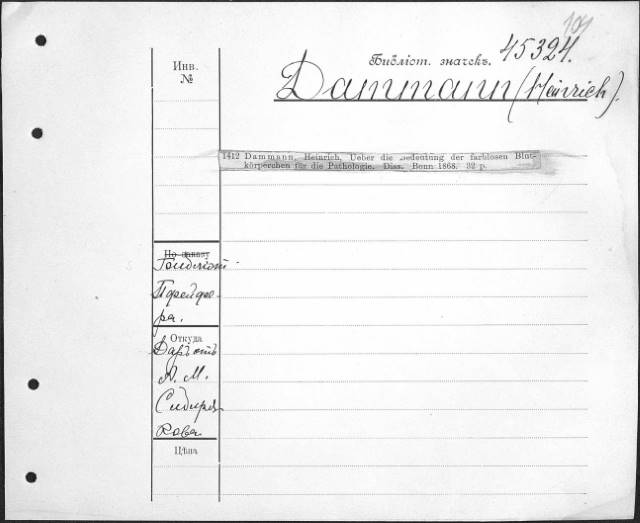 101
Библіот. значекъ. 45324.
Dammann (Heinrich).
Инв.
№
1412 Dammann, Heinrich, Ueber die Bedeutung der farblosen Blut-
körperchen für die Pathologie. Diss. Bonn 1868. 32 p.
По заказу
Пфейфе-
ра.
Откуда
Даръ отъ
А. М.
Сибиря-
кова
Цѣна